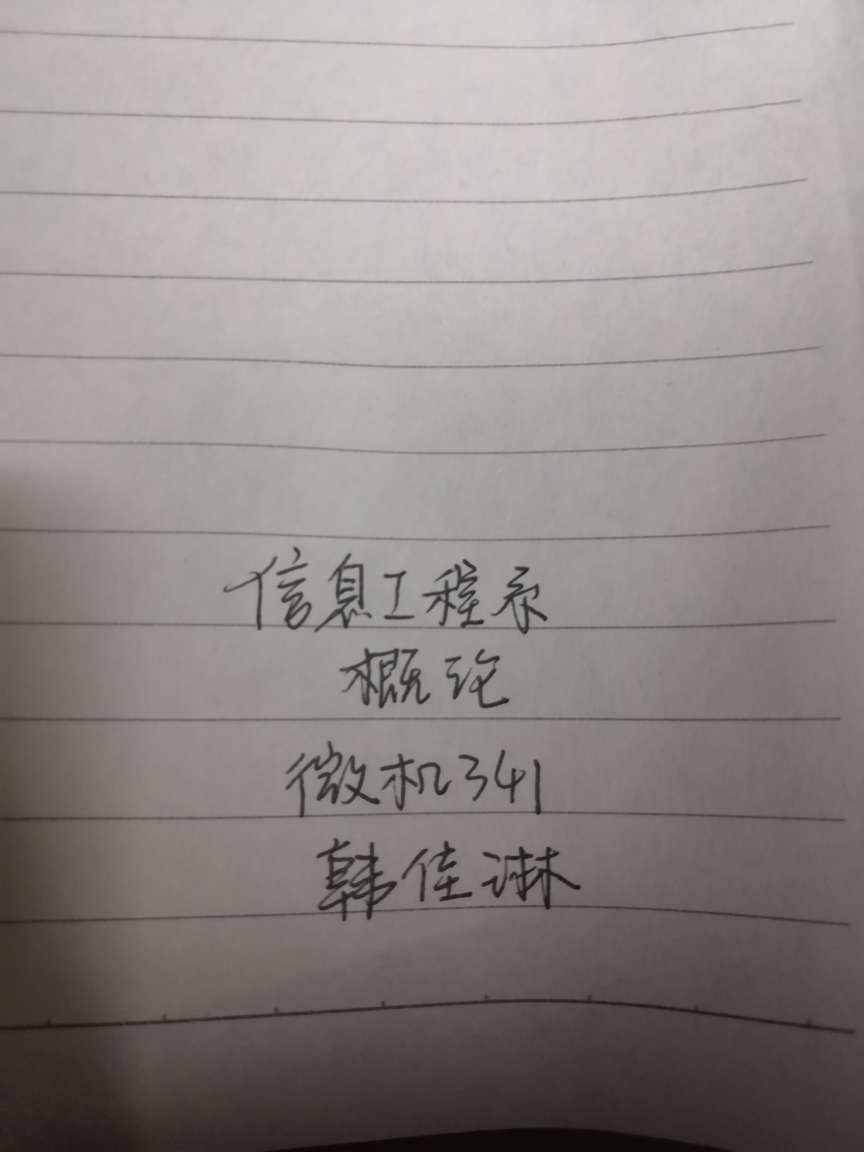 信息工程系
概论
微机341
韩佳淋